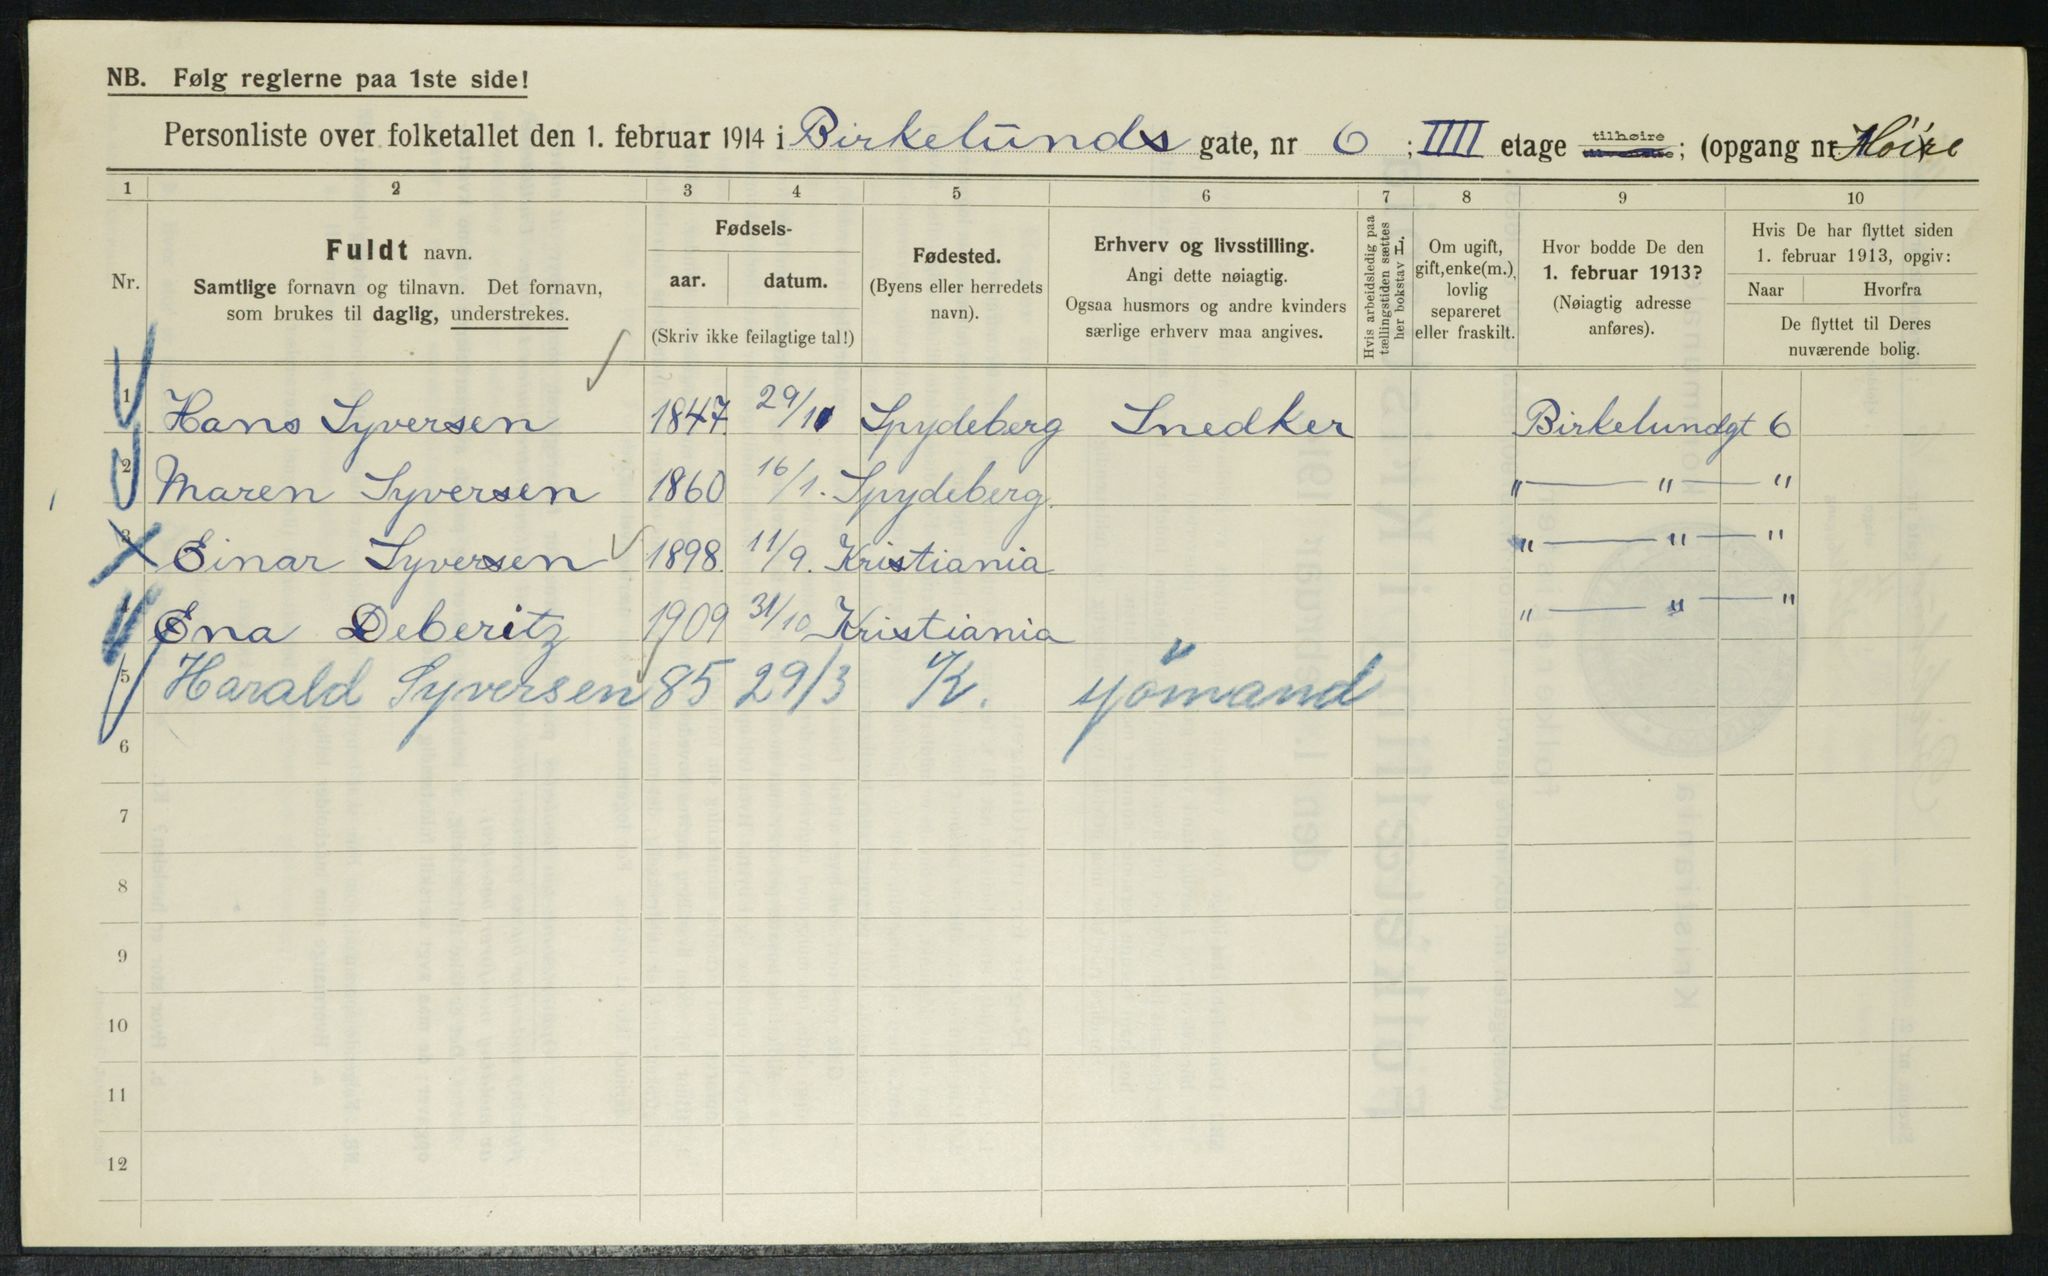 NB. Følg reglerne paa 1ste side!
Personliste over folketallet den 1. februar 1914 i Birkelunds gate, nr 6 ; IIII etage tilhøire ; (opgang nr Høire
1 2 3 4 5 6 7 8 9 10
Nr.
Fuldt navn.
Samtlige fornavn og tilnavn. Det fornavn,
som brukes til daglig, understrekes.
Fødsels-
aar. datum.
(Skriv ikke feilagtige tal!)
Fødested.
(Byens eller herredets
navn).
Erhverv og livsstilling.
Angi dette nøiagtig.
Ogsaa husmors og andre kvinders
særlige erhverv maa angives.
Hvis arbeidsledig paa
tællingstiden sættes
her bokstav L.
Om ugift,
gift, enke(m.),
lovlig
separeret
eller fraskilt.
Hvor bodde De den
1. februar 1913?
(Nøiagtig adresse
anføres).
Hvis De har flyttet siden
1. februar 1913, opgiv:
Naar Hvorfra
De flyttet til Deres
nuværende bolig.
1 Hans Syversen 1847 29/1 Spydeberg Snedker Birkelundgt 6
2 Maren Syversen 1860 16/1. Spydeberg. " — " — "
3 Einar Syversen 1898. 11/9. Kristiania " — " — "
4 Ena Deberitz 1909 31/10 Kristiania " — " — "
5 Harald Syversen 85 29/3 K. sjømand
6
7
8
9
10
11
12